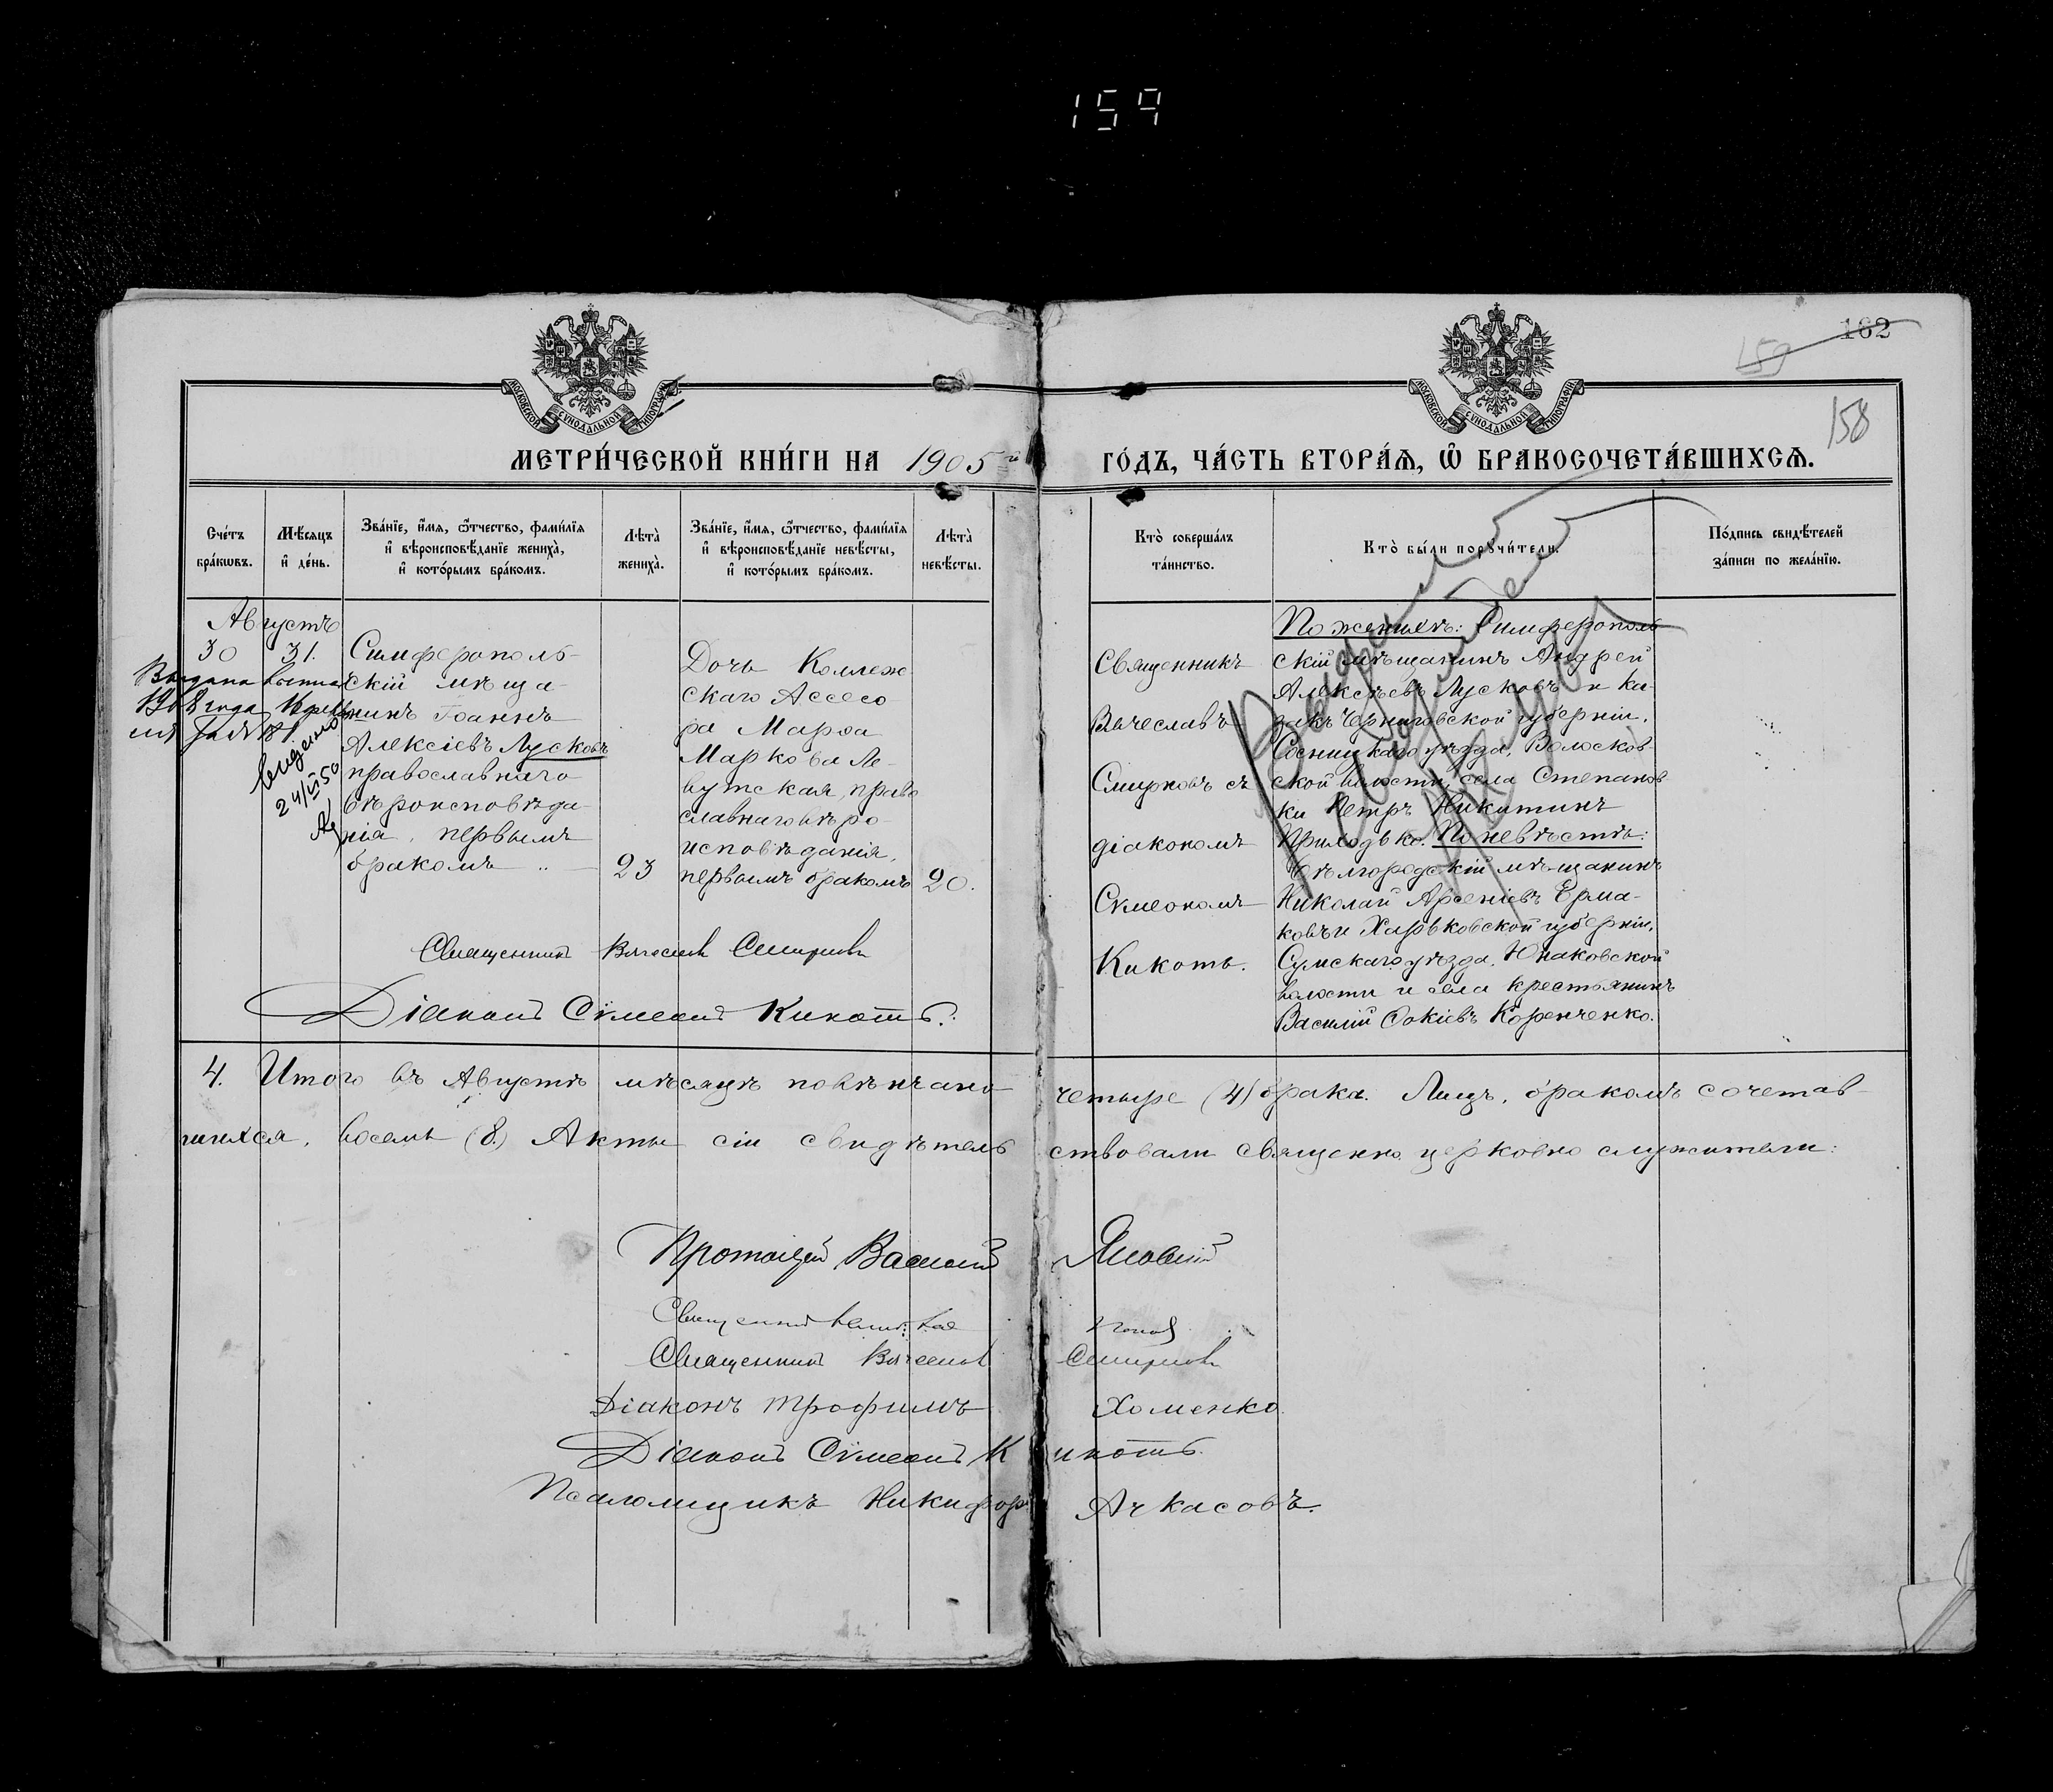 159
162
159
158
МОСКОВСКОЙ СѴНОДАЛЬНОЙ ТИПОГРАФІИ
МОСКОВСКОЙ СѴНОДАЛЬНОЙ ТИПОГРАФІИ
МЕТРИ́ЧЕСКОЙ КНИ́ГИ НА 1905й ГО́ДЪ, ЧА́СТЬ ВТОРА́Ѧ, Ѽ БРАКОСОЧЕТА́ВШИХСѦ.
Сче́тъ
бра́кѡвъ.
Мѣ́сѧцъ
и҆ де́нь.
Зва́нїе, и҆́мѧ, ѻ҆́тчество, фами́лїѧ
и҆ вѣроисповѣ́данїе жениха̀,
и҆ кото́рымъ бра́комъ.
Лѣ́та̀
жениха̀.
Зва́нїе, и҆́мѧ, ѻ҆́тчество, фами́лїѧ
и҆ вѣроисповѣ́данїе невѣ́сты,
и҆ кото́рымъ бра́комъ.
Лѣ́та̀
невѣ́сты.
Кто̀ соверша́лъ
та́инство.
Кто̀ бы́ли порꙋчи́тели.
По́дпись свидѣ́телей
за́писи по жела́нїю.
Августъ
30 31.
Симферополь-
скій мѣща-
нинъ Іоаннъ
Алексіевъ Лусковъ
православнаго
вѣроисповѣда-
нія, первымъ
бракомъ
23
Дочь Коллеж
скаго Ассесо
ра Марѳа
Маркова Ле-
вутская, право
славнаго вѣро-
исповѣданія,
первымъ бракомъ
20.
Выдана выпись
1908 года
за № 181.
Видено
24/VI 50
Священникъ
Вячеславъ
Смирновъ съ
діакономъ
Сѵмеономъ
Кикоть.
По женихѣ: Симферополь
скій мѣщанинъ Андрей
Алексѣевъ Лусковъ и ка-
закъ Черниговской губерніи,
Сосницкаго уѣзда, Волосков-
ской волости, села Степанов
ки Петръ Никитинъ
Приходько. По невѣстѣ:
Бѣлгородскій мѣщанинъ
Николай Арсеніевъ Ерма-
ковъ и Харьковской губерніи,
Сумскаго уѣзда, Юнаковской
волости и села крестьянинъ
Василій Фокіевъ Коренченко.
Священникъ Вячеславъ Смирновъ
Діаконъ Сѵмеонъ Кикоть.
4. Итого въ Августѣ мѣсяцѣ повѣнчано четыре (4) брака. Лицъ, бракомъ сочетав-
шихся, восемь (8.) Акты сіи свидѣтель ствовали священно церковно служители:
Протоіерей Василій Яновскій
Священникъ Попов
Священникъ Вячеслав Смирновъ
Діаконъ Трофимъ Хоменко
Діаконъ Сѵмеонъ Кикоть.
Псаломщикъ Никифоръ Ачкасовъ.